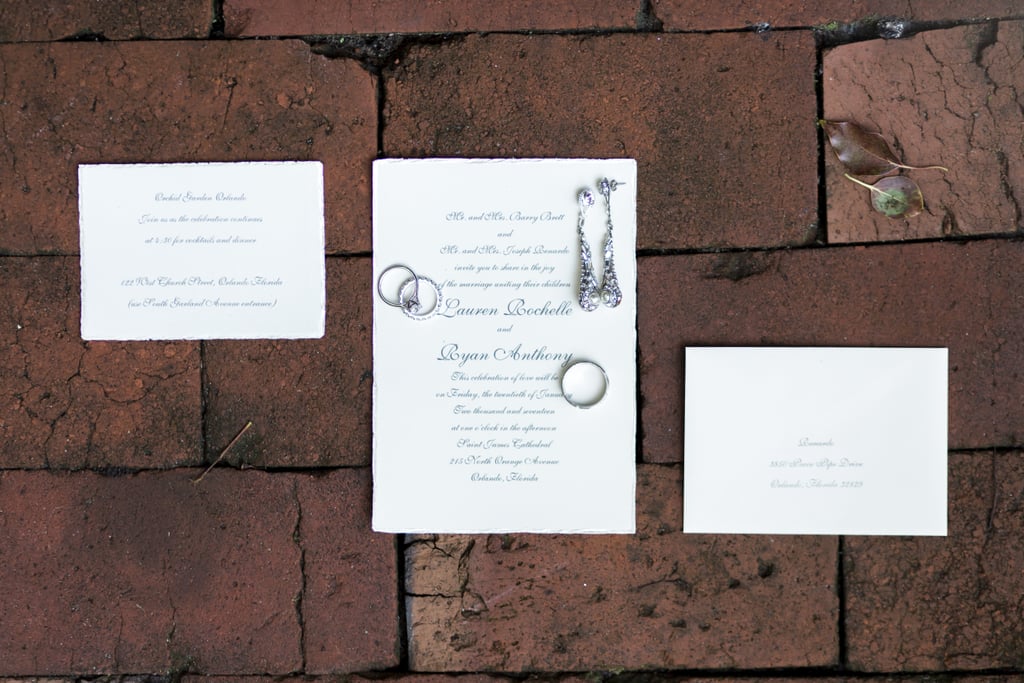 Orchid Garden Orlando
Join us as the celebration continues
at 4:30 for cocktails and dinner
122 West Church Street, Orlando Florida
(use South Garland Avenue entrance)
Mr. and Mrs. Barry Brett
and
Mr. and Mrs. Joseph Renardo
invite you to share in the joy
of the marriage uniting their children
Lauren Rochelle
and
Ryan Anthony
This celebration of love will be
on Friday, the twentieth of January
Two thousand and seventeen
at one o'clock in the afternoon
Saint James Cathedral
215 North Orange Avenue
Orlando, Florida
Renardo
Pipe Drive
Orlando, Florida 32829